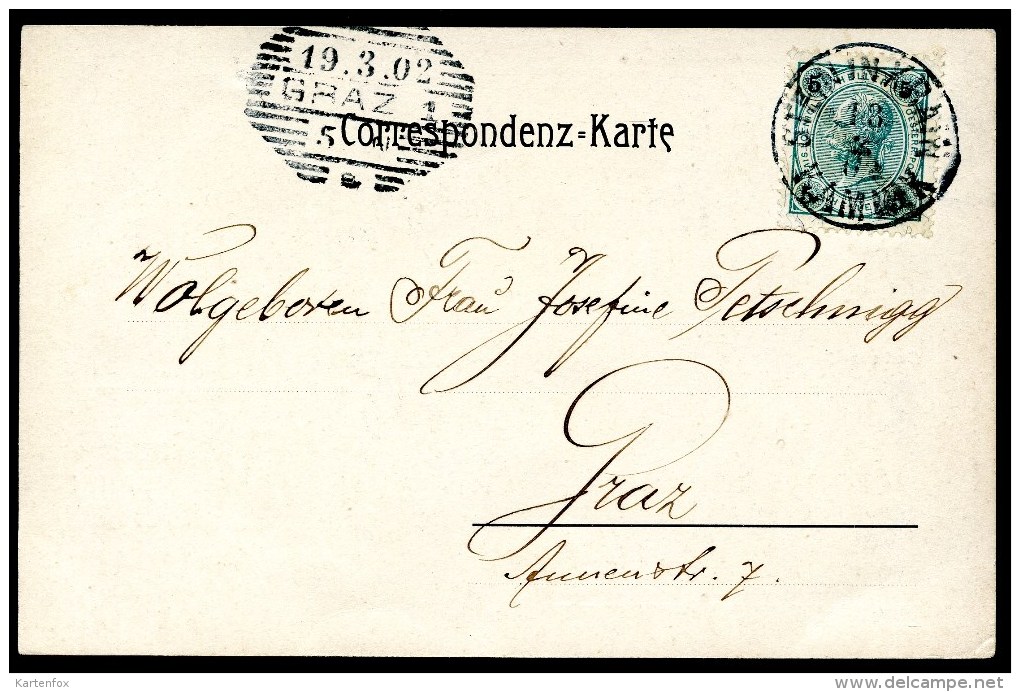 19.3.02
GRAZ 1
5
Correspondenz=Karte
5 5
18
Wolgeboren Frau Josefine Petschnigg
Graz
Annenstr. 7.
Kartenfox
delcampe.net